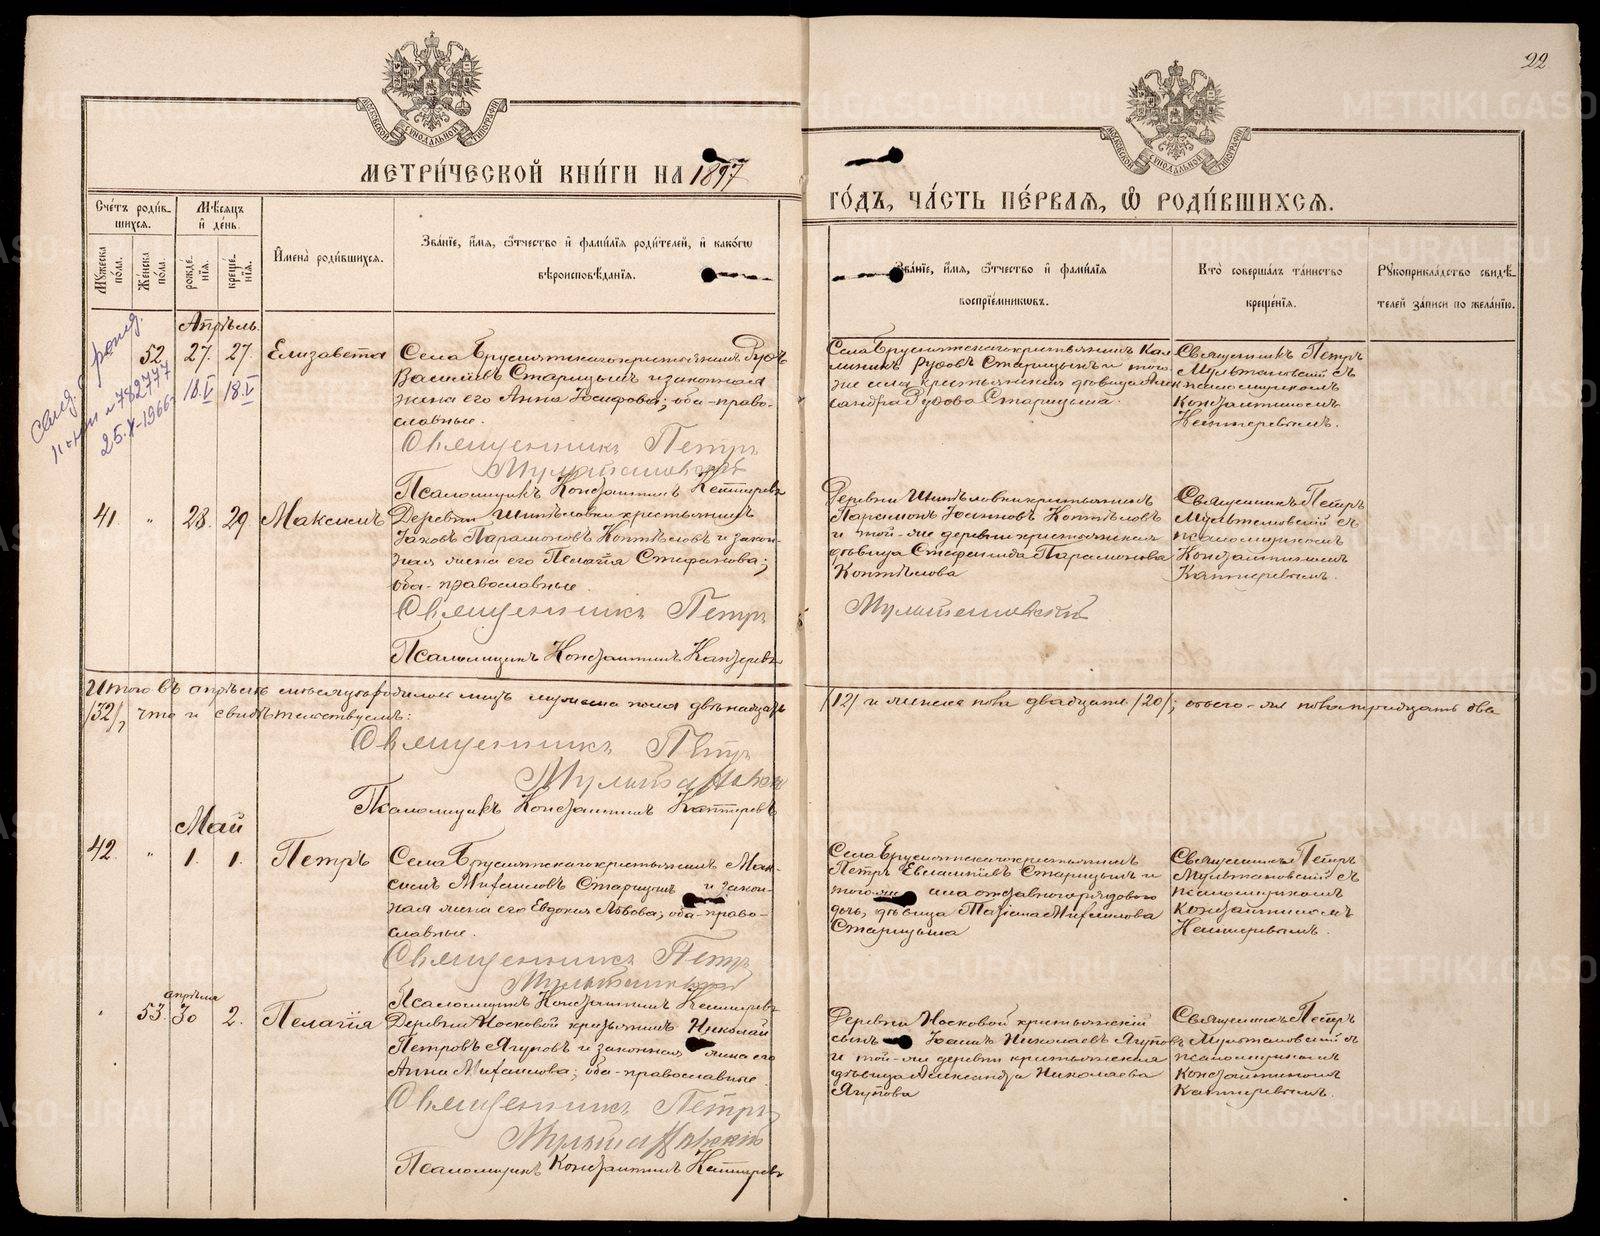 22
МЕТРИ́ЧЕСКОЙ КНИ́ГИ НА 1897
ГО́ДЪ, ЧА́СТЬ ПЕ́РВАѦ, Ѿ РОДИ́ВШИХСѦ.
Сче́тъ роди́вшихсѧ.
Мѣ́сѧцъ и҆ де́нь.
Мꙋ́жеска по́ла.
Же́нска по́ла.
рожде́нїѧ.
креще́нїѧ.
И҆мена̀ роди́вшихсѧ.
Зва́нїе, и҆́мѧ, ѻ҆́тчество и҆ фамі́лїѧ роди́телей, и҆ како́гѡ
вѣроисповѣ́данїѧ.
Зва́нїе, и҆́мѧ, ѻ҆́тчество и҆ фамі́лїѧ
воспрїе́мникѡвъ.
Кто̀ соверша́лъ та́инство
креще́нїѧ.
Рꙋкоприкла́дство свидѣ́-
телей за́писи по жела́нїю.
Апрѣль.
52. 27. 27. Елизавета
10.V 18.V
25.X-1966г
Села Бруснятскаго крестьянинъ Руфъ
Василіевъ Старицынъ и законная
жена его Анна Іосифова; оба-право-
славные.
Священникъ Петръ
Мультановскій
Псаломщикъ Константинъ Каптеревъ
Села Бруснятскаго крестьянинъ Кал-
линикъ Руфовъ Старицынъ и того-
же села крестьянская дѣвица Алек-
сандра Руфова Старицына.
Священникъ Петръ
Мультановскій съ
псаломщикомъ
Константиномъ
Каптеревымъ.
41. " 28. 29. Максимъ
Деревни Шипѣловки крестьянинъ
Іаковъ Парамоновъ Коптѣловъ и закон-
ная жена его Пелагія Стефанова;
оба-православные.
Священникъ Петръ
Мультановскій
Псаломщикъ Константинъ Каптеревъ
Деревни Шипѣловки крестьянинъ
Парамонъ Іоанновъ Коптѣловъ
и той-же деревни крестьянская
дѣвица Стефанида Парамонова
Коптѣлова
Священникъ Петръ
Мультановскій съ
псаломщикомъ
Константиномъ
Каптеревымъ.
Итого въ апрѣлѣ мѣсяцѣ родилось лицъ мужеска пола двѣнадцать /12/ и женска пола двадцать /20/; обоего-же пола тридцать два
/32/, что и свидѣтельствуемъ:
Священникъ Петръ
Мультановскій
Псаломщикъ Константинъ Каптеревъ
Май
42. " 1. 1. Петръ
Села Бруснятскаго крестьянинъ Мак-
симъ Михаиловъ Старицынъ и закон-
ная жена его Евдокія Львова; оба-право-
славные.
Священникъ Петръ
Мультановскій
Псаломщикъ Константинъ Каптеревъ
Села Бруснятскаго крестьянинъ
Петръ Евлампіевъ Старицынъ и
того-же села отставного рядового
дочь, дѣвица Татіана Михаилова
Старицына
Священникъ Петръ
Мультановскій съ
псаломщикомъ
Константиномъ
Каптеревымъ.
апрѣля
" 53. 30 2. Пелагія
Деревни Носковой крестьянинъ Николай
Петровъ Ягуповъ и законная жена его
Анна Михаилова; оба-православные.
Священникъ Петръ
Мультановскій
Псаломщикъ Константинъ Каптеревъ
Деревни Носковой крестьянскій
сынъ Іоаннъ Николаевъ Ягуповъ
и той-же деревни крестьянская
дѣвица Александра Николаева
Ягупова
Священникъ Петръ
Мультановскій съ
псаломщикомъ
Константиномъ
Каптеревымъ.
METRIKI.GASO-URAL.RU